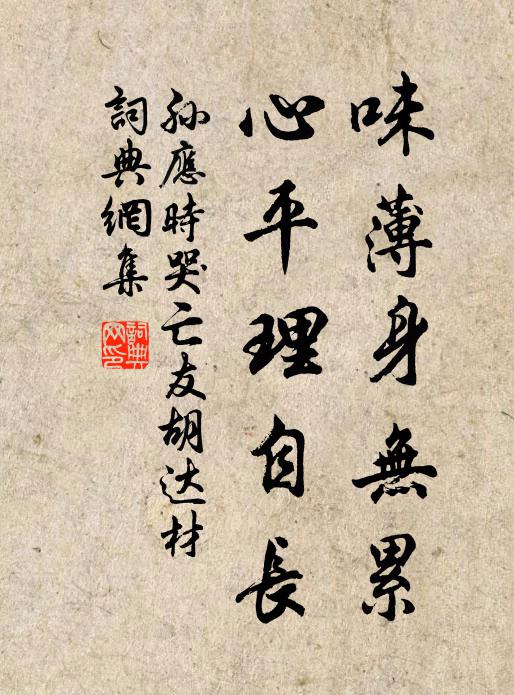 味薄身無累
心平理自長
孫應時哭亡友胡达材
詞典網集
詞典網印